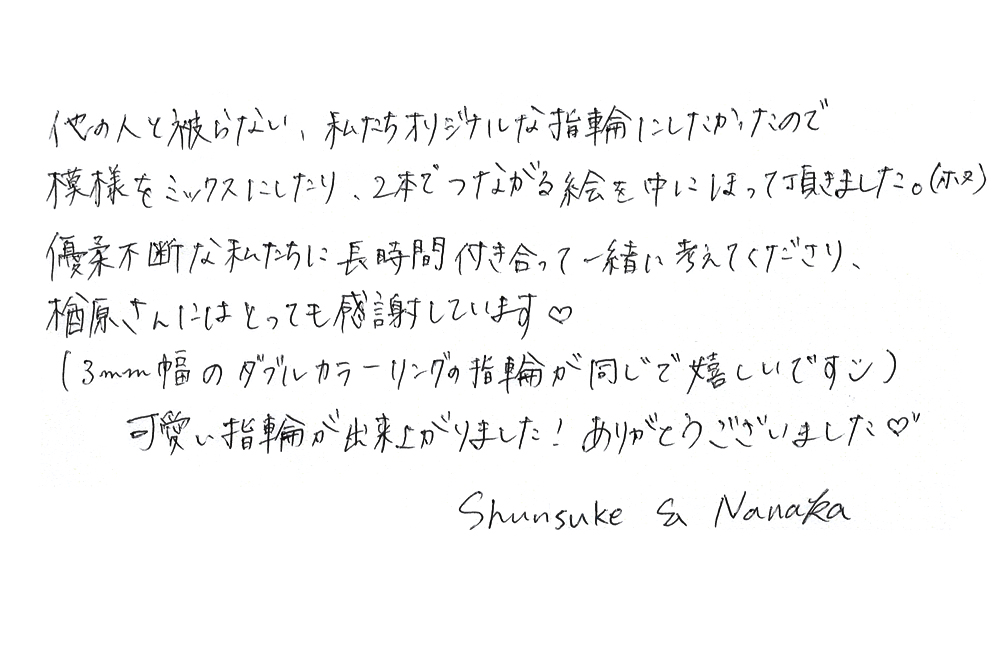 他の人と被らない、私たちオリジナルな指輪にしたかったので
模様をミックスにしたり、2本でつながる絵を中にほって頂きました。(ホヌ)
優柔不断な私たちに長時間付き合って一緒に考えてくださり、
楢原さんにはとっても感謝しています♡
(3mm幅のダブルカラーリングの指輪が同じで嬉しいです)
可愛い指輪が出来上がりました!ありがとうございました♡"
Shunsuke & Nanaka